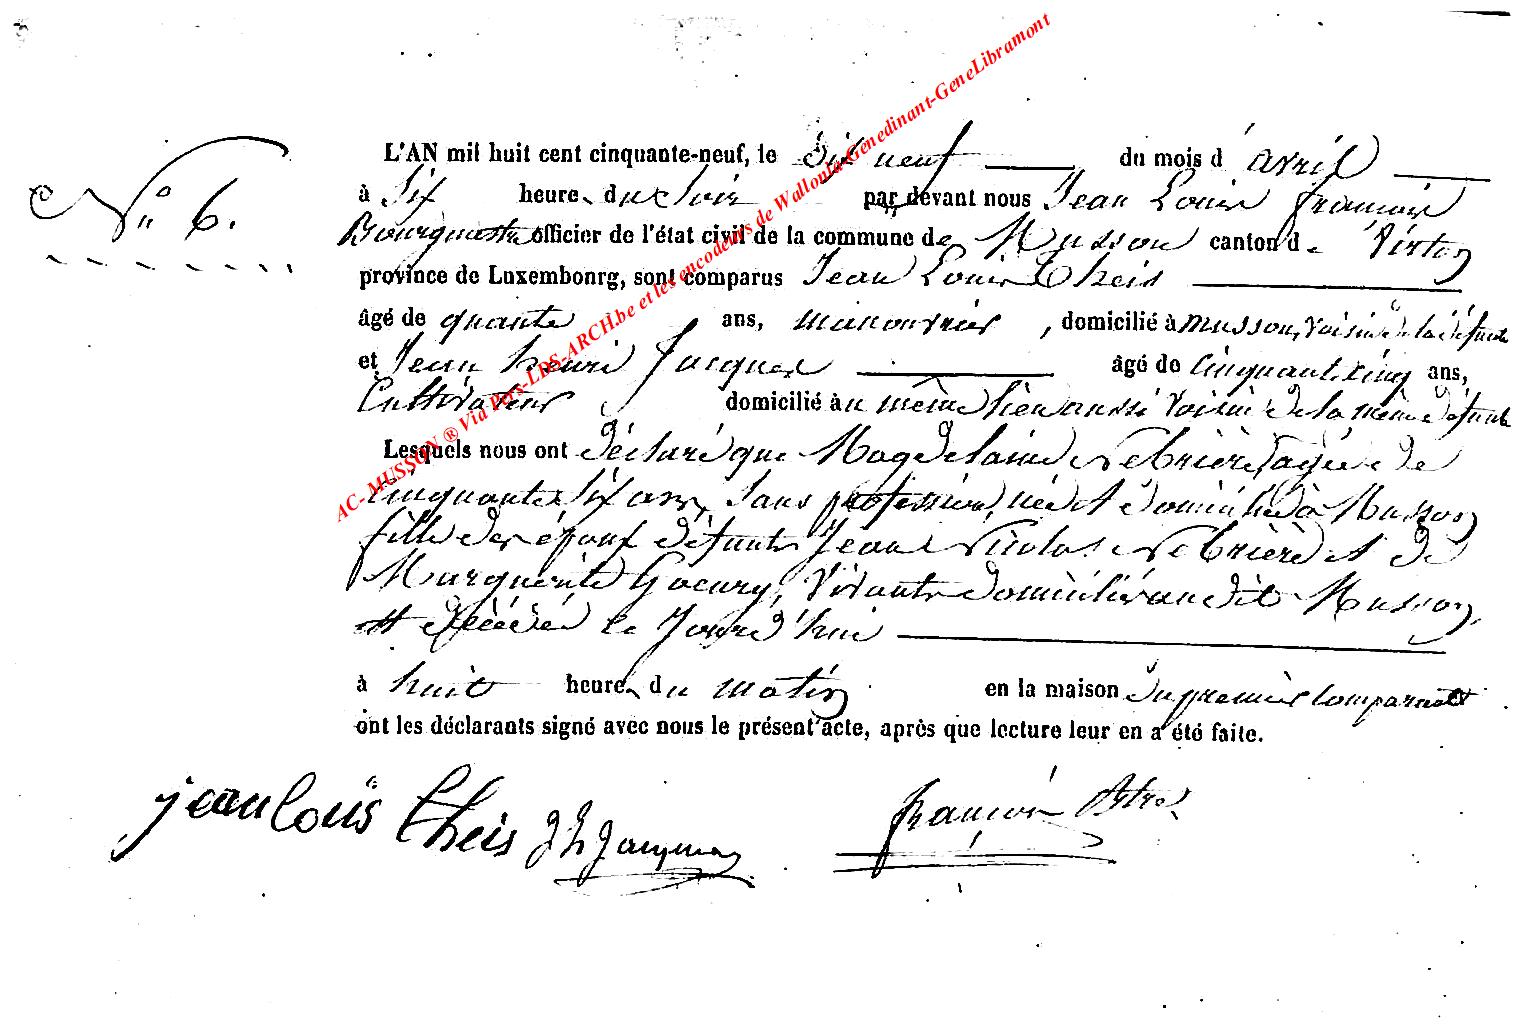 AC-MUSSON ® Via Pers-LDS-ARCH.be et les encodeurs de Wallonia-Genedinant-GeneLibramont
No 6.
L'AN mil huit cent cinquante-neuf, le dix neuf du mois d'avril
à six heures du soir par devant nous Jean Louis françois
Bourgmestre officier de l'état civil de la commune de Musson canton de Virton
province de Luxembourg, sont comparus Jean Louis Theis
âgé de quante ans, manouvrier, domicilié à musson, voisin de la défunte
et Jean henri Jacques âgé de cinquante cinq ans,
Cultivateur domicilié au même lieu aussi voisin de la même défunte
Lesquels nous ont déclaré que Magdelaine agée de
cinquante six ans, sans profession, née et domiciliée à Musson
fille des époux défunts Jean Nicolas et de
Marguerite Goeury, vivants domiciliés au dit Musson,
est décédée ce jourd'hui
à huit heures du matin en la maison du premier comparant
ont les déclarants signé avec nous le présent acte, après que lecture leur en a été faite.
jean louis theis J h Jacques françois Bstre